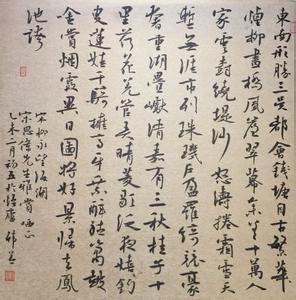 東南形勝三吳都會錢塘自古繁華
煙柳畫橋風簾翠幕參差十萬人
家雲樹繞堤沙怒濤捲霜雪天
塹無涯市列珠璣戶盈羅綺競豪
奢重湖疊巘清嘉有三秋桂子十
里荷花羌管弄晴菱歌泛夜嬉嬉釣
叟蓮娃千騎擁高牙乘醉聽簫鼓
吟賞煙霞異日圖將好景歸去鳳
池誇
宋柳永望海潮
宋思偉先生雅賞哂正
乙未二月初五於